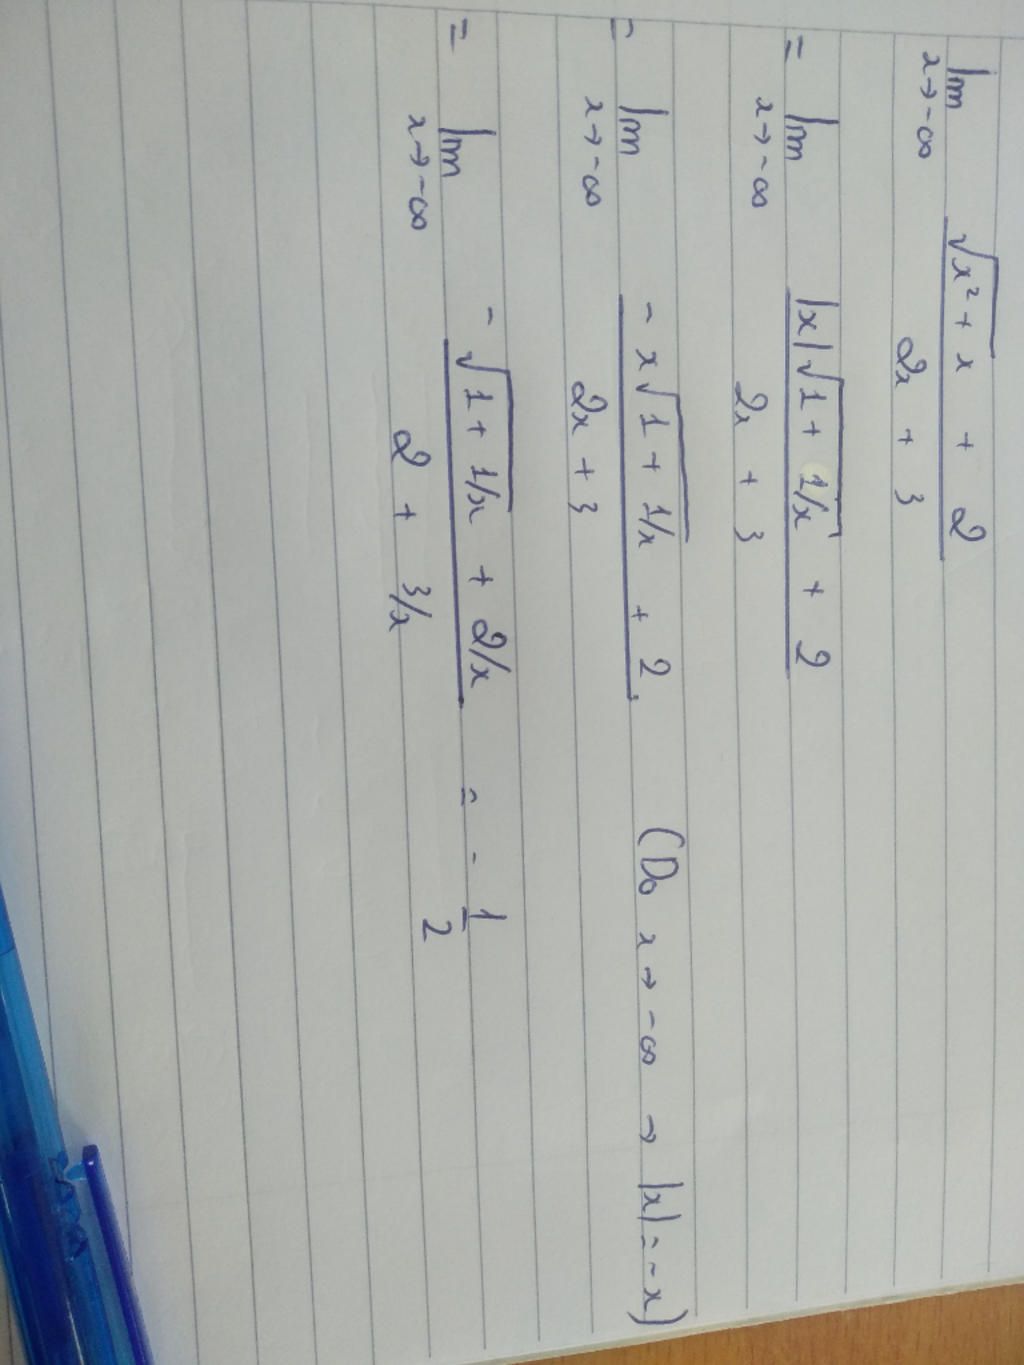 lim x→-∞ (√(x² + x) + 2) / (2x + 3)
= lim x→-∞ (|x|√(1 + 1/x) + 2) / (2x + 3)
= lim x→-∞ (- x√(1 + 1/x) + 2) / (2x + 3) (Do x → -∞ → |x| = -x)
= lim x→-∞ (- √(1 + 1/x) + 2/x) / (2 + 3/x) = - 1/2